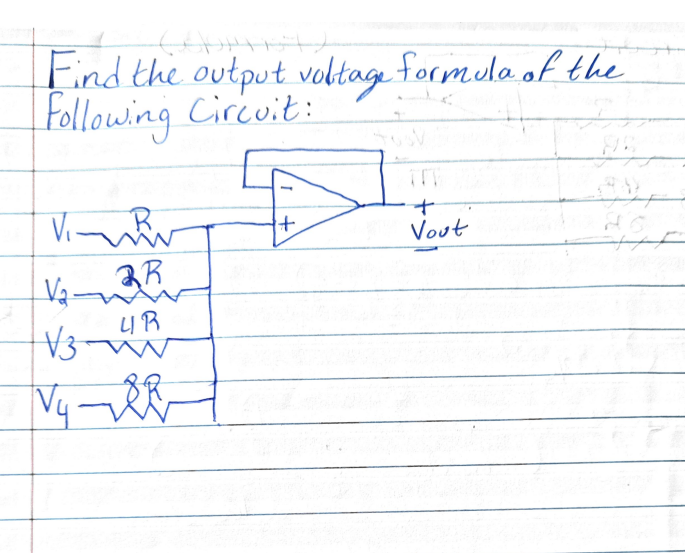 Find the output voltage formula of the
Following Circuit:
-
+
+
Vout
-
V1 R
V2 2R
V3 4R
V4 8R